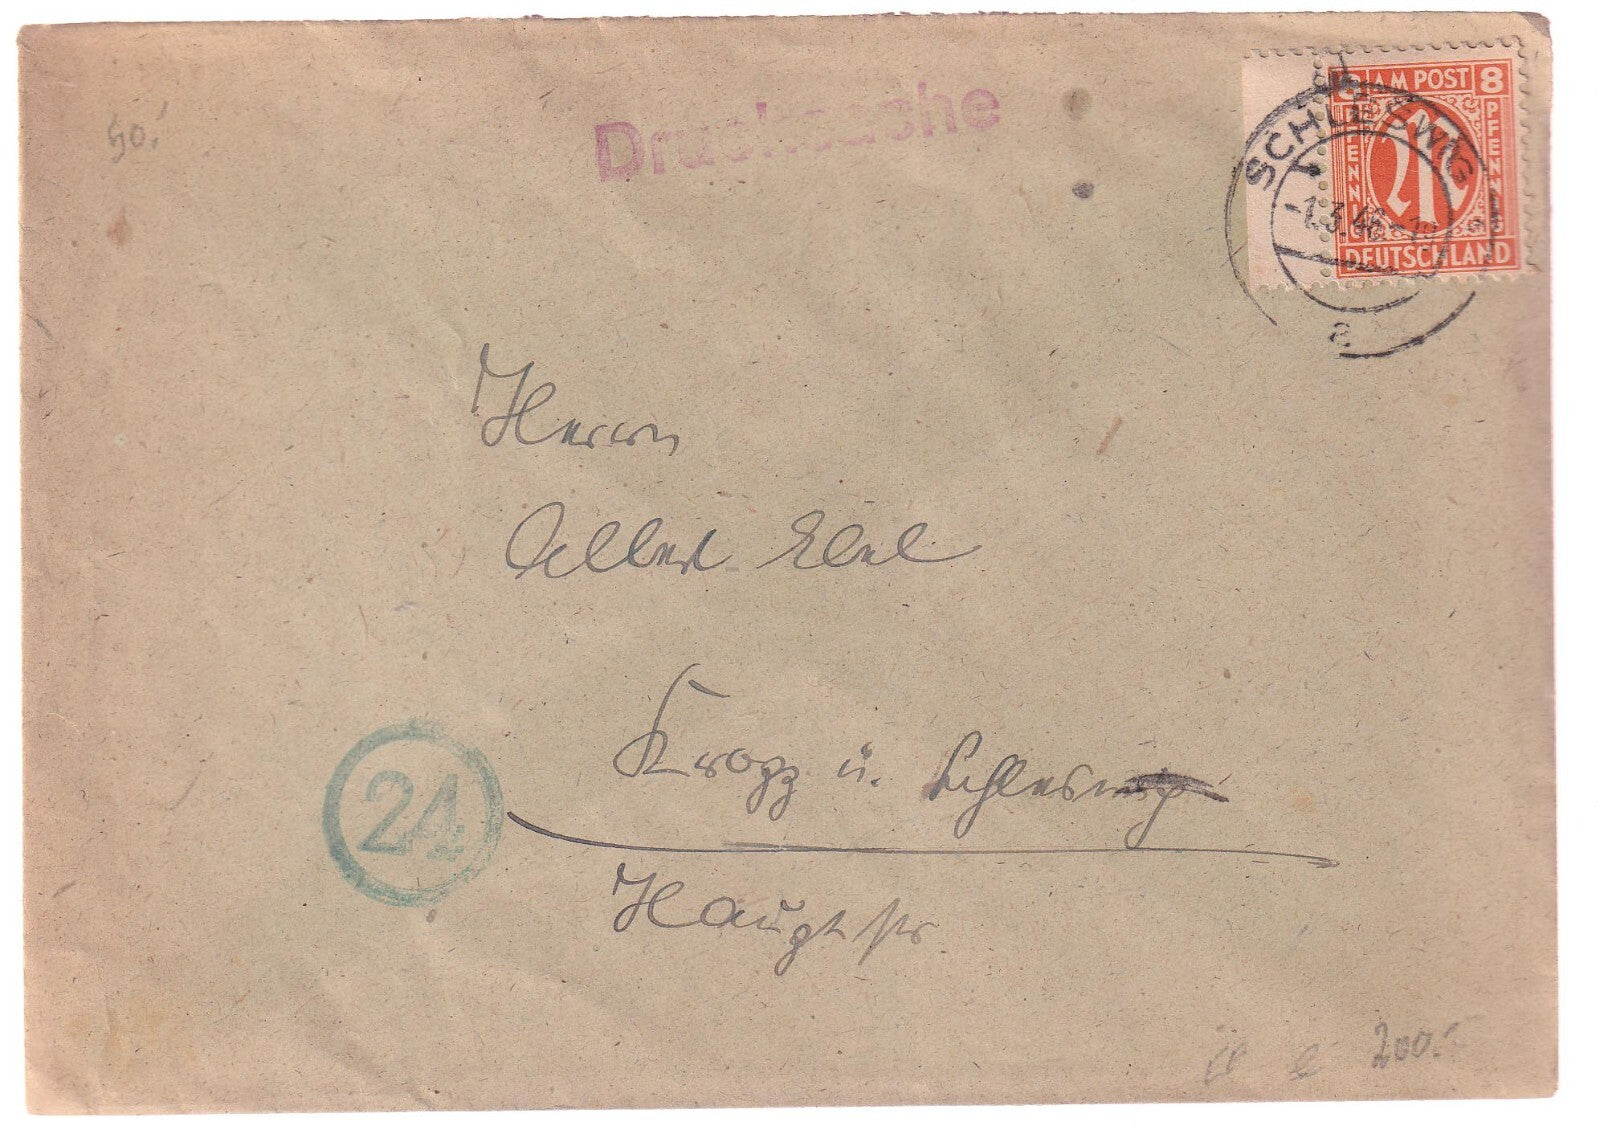 50.-
Drucksache
AM POST 8
PFENNIG
PFENNIG
DEUTSCHLAND
SCHLESWIG
-1.3.46.-
a
Herrn
Albert Ebel
Kropp ü. Schleswig
24
Hauptstr
200.-